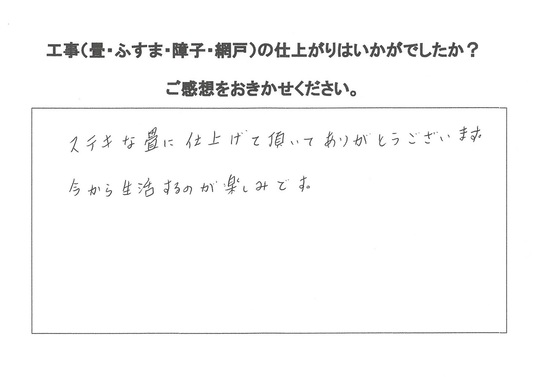 工事(畳・ふすま・障子・網戸)の仕上がりはいかがでしたか？
ご感想をおきかせください。
ステキな畳に仕上げて頂いてありがとうございます。
今から生活するのが楽しみです。